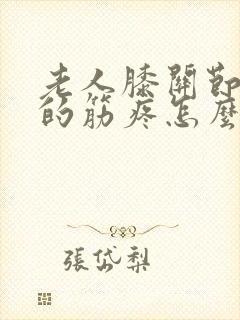 老人膝關節
的筋疼怎麼
張岱梨